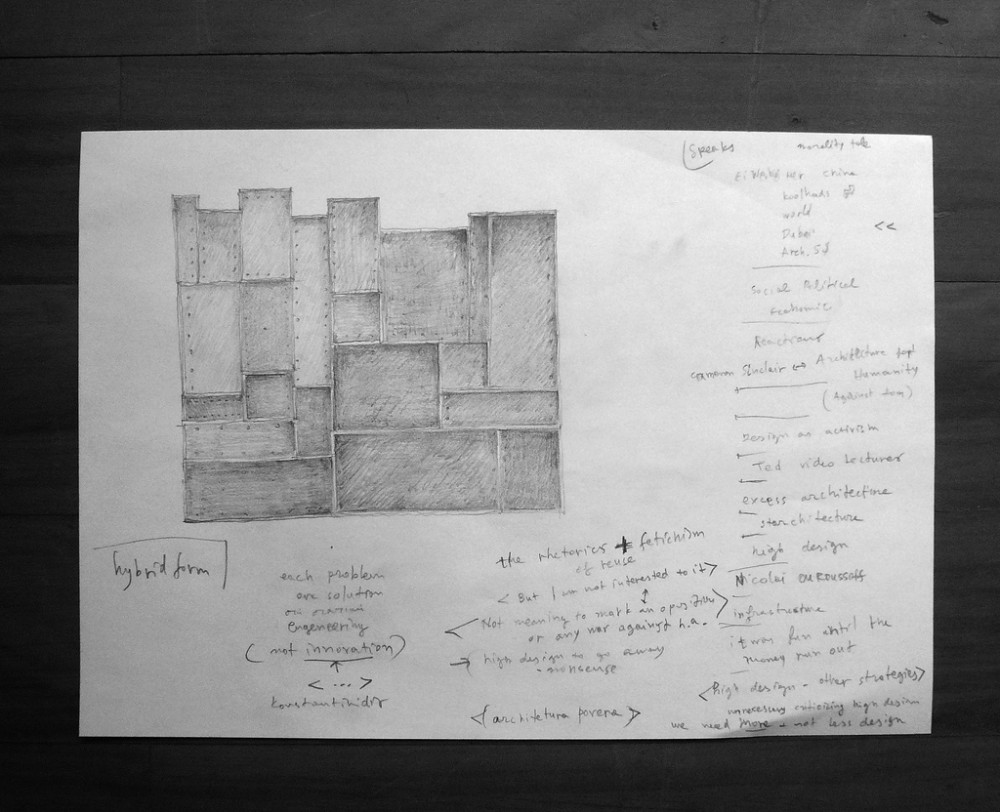 Speaks
morality tale
China
koolhaas
world
Dubai
Arch.
<<
Social Political
Economic
Reactions
Cameron Sinclair ↔ Architecture for
Humanity
(Against them)
Design as activism
Ted video lectures
excess architecture
starchitecture
high design
Nicolai ouroussoff
infrastructure
it was fun until the
money run out
<high design - other strategies>
unnecessary criticizing high design
we need More - not less design
hybrid form
each problem
one solution
engineering
(not innovation)
<...>
konstantinidis
the rhetorics + fetichism
of reuse
< But I am not interested to it>
Not meaning to mark an opposition
or any war against h.a.
high design to go away
- nonsense
<architetura povera>